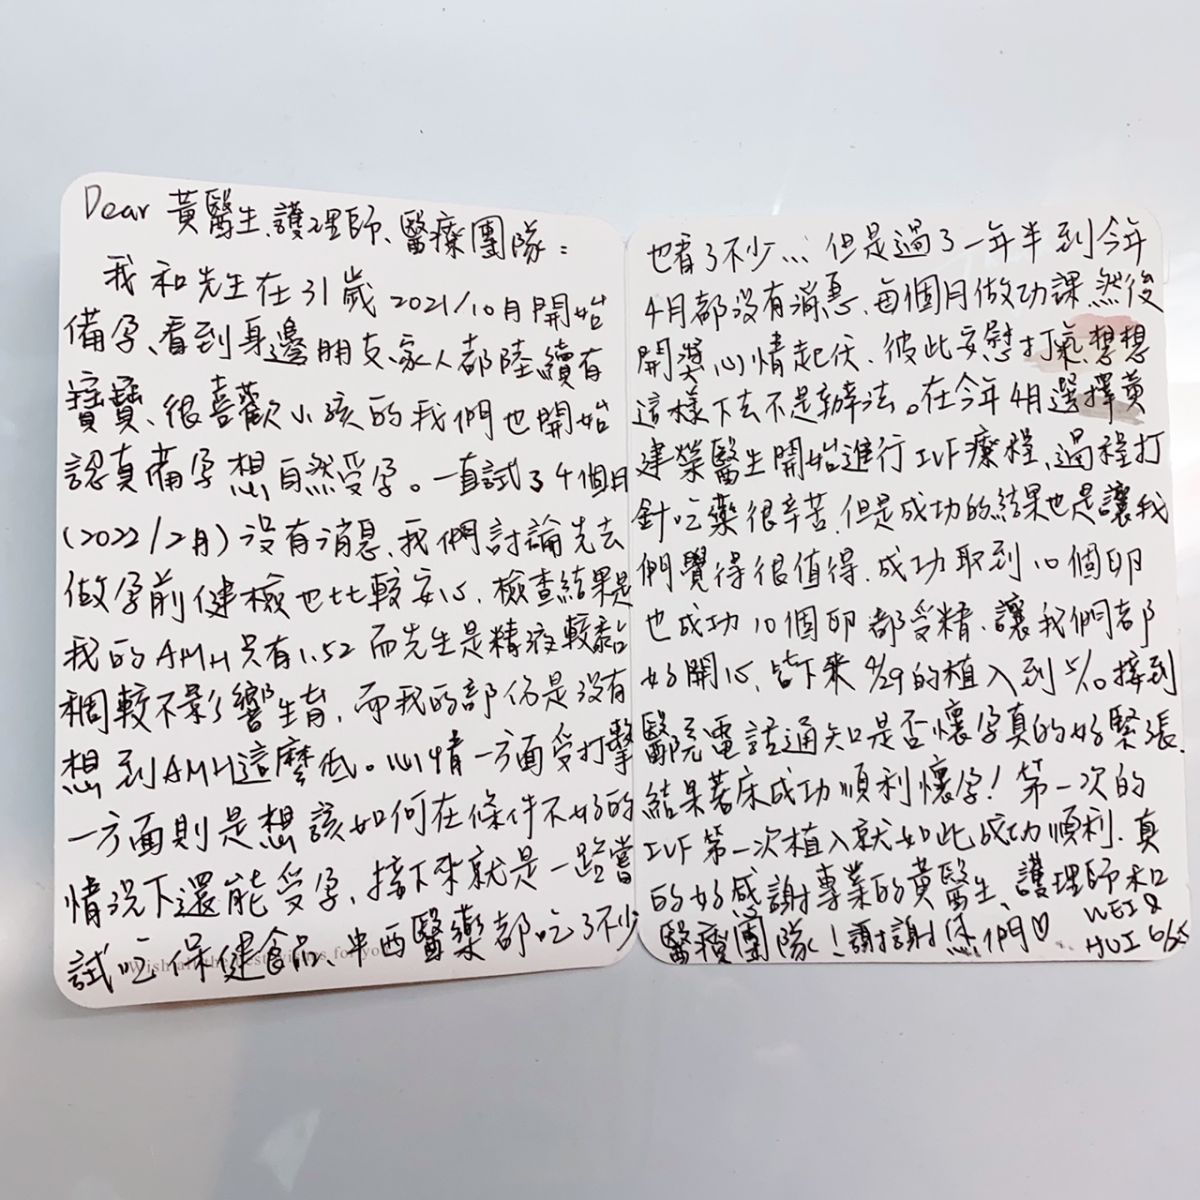 Dear 黃醫生、護理師、醫療團隊：
我和先生在31歲 2021/10月開始
備孕、看到身邊朋友、家人都陸續有
寶寶、很喜歡小孩的我們也開始
認真備孕想自然受孕。一直試了4個月
(2022/2月) 沒有消息、我們討論先去
做孕前健檢也比較安心、檢查結果是
我的AMH只有1.52 而先生是精液較黏
稠較不影響生育，而我的部份是沒有
想到AMH這麼低。心情一方面受打擊
一方面則是想該如何在條件不好的
情況下還能受孕，接下來就是一些嘗
試吃保健食品、中西醫藥都吃了不少
也看了不少... 但是過了一年半到今年
4月都沒有消息、每個月做功課然後
開獎心情起伏、彼此安慰打氣、想想
這樣下去不是辦法。在今年4月選擇黃
建榮醫生開始進行IVF療程、過程打
針吃藥很辛苦、但是成功的結果也是讓我
們覺得很值得、成功取到10個卵
也成功10個卵都受精、讓我們都
好開心、皆下來 4/29的植入到5/10接到
醫院電話通知是否懷孕真的好緊張、
結果著床成功順利懷孕！第一次的
IVF第一次植入就如此成功順利、真
的好感謝專業的黃醫生、護理師和
醫療團隊！謝謝你們♡
WEI &
HUI